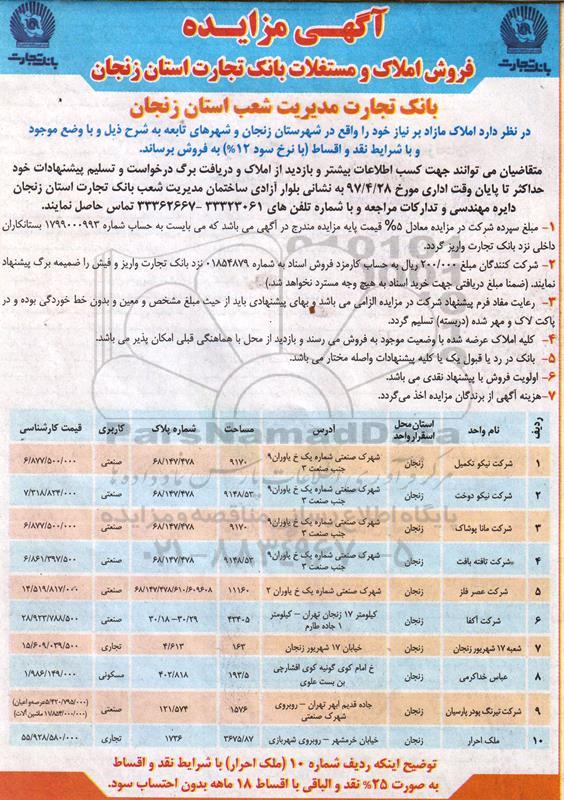 آگهی مزایده
بانک تجارت
بانک تجارت
فروش املاک و مستغلات بانک تجارت استان زنجان
بانک تجارت مدیریت شعب استان زنجان
در نظر دارد املاک مازاد بر نیاز خود را واقع در شهرستان زنجان و شهرهای تابعه به شرح ذیل و با وضع موجود
و با شرایط نقد و اقساط (با نرخ سود ۱۲%) به فروش برساند.
متقاضیان می توانند جهت کسب اطلاعات بیشتر و بازدید از املاک و دریافت برگ درخواست و تسلیم پیشنهادات خود
حداکثر تا پایان وقت اداری مورخ ۹۷/۴/۲۸ به نشانی بلوار آزادی ساختمان مدیریت شعب بانک تجارت استان زنجان
دایره مهندسی و تدارکات مراجعه و با شماره تلفن های ۳۳۳۲۳۰۶۱ -۳۳۳۶۲۶۶۷ تماس حاصل نمایند.
۱- مبلغ سپرده شرکت در مزایده معادل ۵% قیمت پایه مزایده مندرج در آگهی می باشد که می بایست به حساب شماره ۱۷۹۹۰۰۰۹۹۳ بستانکاران
داخلی نزد بانک تجارت واریز گردد.
۲- شرکت کنندگان مبلغ ۲۰۰/۰۰۰ ریال به حساب کارمزد فروش اسناد به شماره ۰۱۸۵۴۸۷۹ نزد بانک تجارت واریز و فیش را ضمیمه برگ پیشنهاد
نمایند. (ضمنا مبلغ دریافتی جهت خرید اسناد به هیچ وجه مسترد نخواهد شد.)
۳- رعایت مفاد فرم پیشنهاد شرکت در مزایده الزامی می باشد و بهای پیشنهادی باید از حیث مبلغ مشخص و معین و بدون خط خوردگی بوده و در
پاکت لاک و مهر شده (دربسته) تسلیم گردد.
۴- کلیه املاک عرضه شده با وضعیت موجود به فروش می رسند و بازدید از محل با هماهنگی قبلی امکان پذیر می باشد.
۵- بانک در رد یا قبول یک یا کلیه پیشنهادات واصله مختار می باشد.
۶- اولویت فروش با پیشنهاد نقدی می باشد.
۷-هزینه آگهی از برندگان مزایده اخذ می‌گردد.
ردیف نام واحد استان محل استقرار واحد آدرس مساحت شماره پلاک کاربری قیمت کارشناسی
۱ شرکت نیکو تکمیل زنجان شهرک صنعتی شماره یک خ یاوران۹ جنب صنعت ۳ ۹۱۷۰ ۶۸/۱۴۷/۴۷۸ صنعتی ۶/۸۷۷/۵۰۰/۰۰۰
۲ شرکت نیکو دوخت زنجان شهرک صنعتی شماره یک خ یاوران۹ جنب صنعت ۳ ۹۱۴۸/۵۳ ۶۸/۱۴۷/۴۷۸ صنعتی ۷/۳۱۸/۸۲۴/۰۰۰
۳ شرکت مانا پوشاک زنجان شهرک صنعتی شماره یک خ یاوران۹ جنب صنعت ۳ ۹۱۷۰ ۶۸/۱۴۷/۴۷۸ صنعتی ۶/۸۷۷/۵۰۰/۰۰۰
۴ شرکت تافته بافت زنجان شهرک صنعتی شماره یک خ یاوران۹ جنب صنعت ۳ ۹۱۴۸/۵۳ ۶۸/۱۴۷/۴۷۸ صنعتی ۶/۸۶۱/۳۹۷/۵۰۰
۵ شرکت عصر فلز زنجان شهرک صنعتی شماره یک خ یاوران ۲ ۱۱۱۶۰ ۶۸/۱۴۷/۴۷۸/۶۱۰/۶۰۹۶۰۸ صنعتی ۱۴/۵۱۹/۸۱۷/۰۰۰
۶ شرکت آکفا زنجان کیلومتر ۱۷ زنجان تهران – کیلومتر ۱ جاده طارم ۴۳۴۰۵ ۳۰/۱۸-۳۰/۲۹ صنعتی ۲۸/۹۲۳/۷۸۸/۵۰۰
۷ شعبه ۱۷ شهریور زنجان زنجان خیابان ۱۷ شهریور زنجان ۱۶۳ ۴/۶۱۳ تجاری ۱۵/۶۰۹/۰۳۹/۵۰۰
۸ عباس خداکرمی زنجان خ امام کوی گونیه کوی افشارچی بن بست علوی ۱۹۳/۵ ۴۰۲/۸۱۸ مسکونی ۱/۹۸۶/۱۴۹/۰۰۰
۹ شرکت تیرنگ پودر پارسیان زنجان جاده قدیم ابهر تهران – روبروی شهرک صنعتی ۱۵۷۶ ۱۲۱/۵۷۴ صنعتی (۵/۴۲۰/۷۹۵/۰۰۰عرصه و اعیان) (۱۷۸۵۴/۰۰۰/۰۰۰ ماشین آلات)
۱۰ ملک احرار زنجان خیابان خرمشهر – روبروی شهربازی ۳۶۷۵/۸۷ ۱۷۳۶ تجاری ۵۵/۹۲۸/۵۸۰/۰۰۰
توضیح اینکه ردیف شماره ۱۰ (ملک احرار) با شرایط نقد و اقساط
به صورت ۲۵% نقد و الباقی با اقساط ۱۸ ماهه بدون احتساب سود.